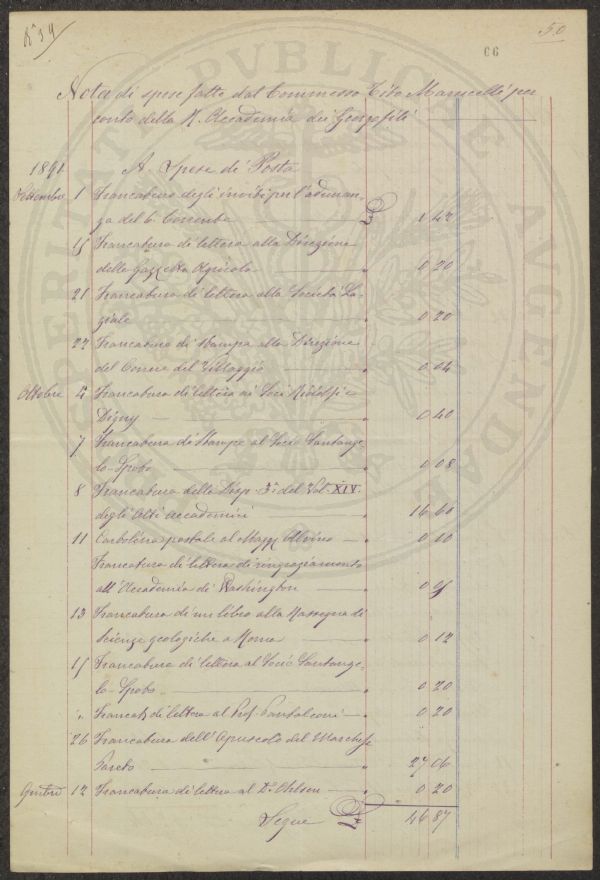 N° 54
50
66
PROSPERITATI PVBLICAE AVGENDAE
Nota di spese fatte dal Commesso Tito Marucelli per
conto della R. Accademia dei Georgofili
1891 A. Spese di Posta
Settembre 1 Francatura degli inviti per l'adunan-
za del 6 Corrente £ 1,42
15 Francatura di lettera alla Direzione
della Gazzetta Agricola " 0 20
21 Francatura di lettera alla Società La-
ziale " 0 20
22 Francatura di stampa alla Direzione
del Corriere del Villaggio " 0 04
Ottobre 4 Francatura di lettera ai Soci Ridolfi e
Digny " 0 40
7 Francatura di Stampe al Socio Santange
lo-Spoto " 0 08
8 Francatura della Disp. 3ª del Vol. XIV.
degli Atti accademici " 14 60
11 Cartolina postale al Magg. " 0 10
Francatura di lettera di ringraziamento
all'Accademia di Washington " 0 05
13 Francatura di un libro alla Rassegna di
Scienze geologiche a Roma " 0 12
15 Francatura di lettera al Socio Santange-
lo-Spoto " 0 20
" Francat. di lettera al Prof. Pantaleoni " 0 20
26 Francatura dell'Opuscolo del Marchese
Pareto " 27 06
12 Francatura di lettera al Dr. Ohlsen " 0 20
Segue £ 46 87